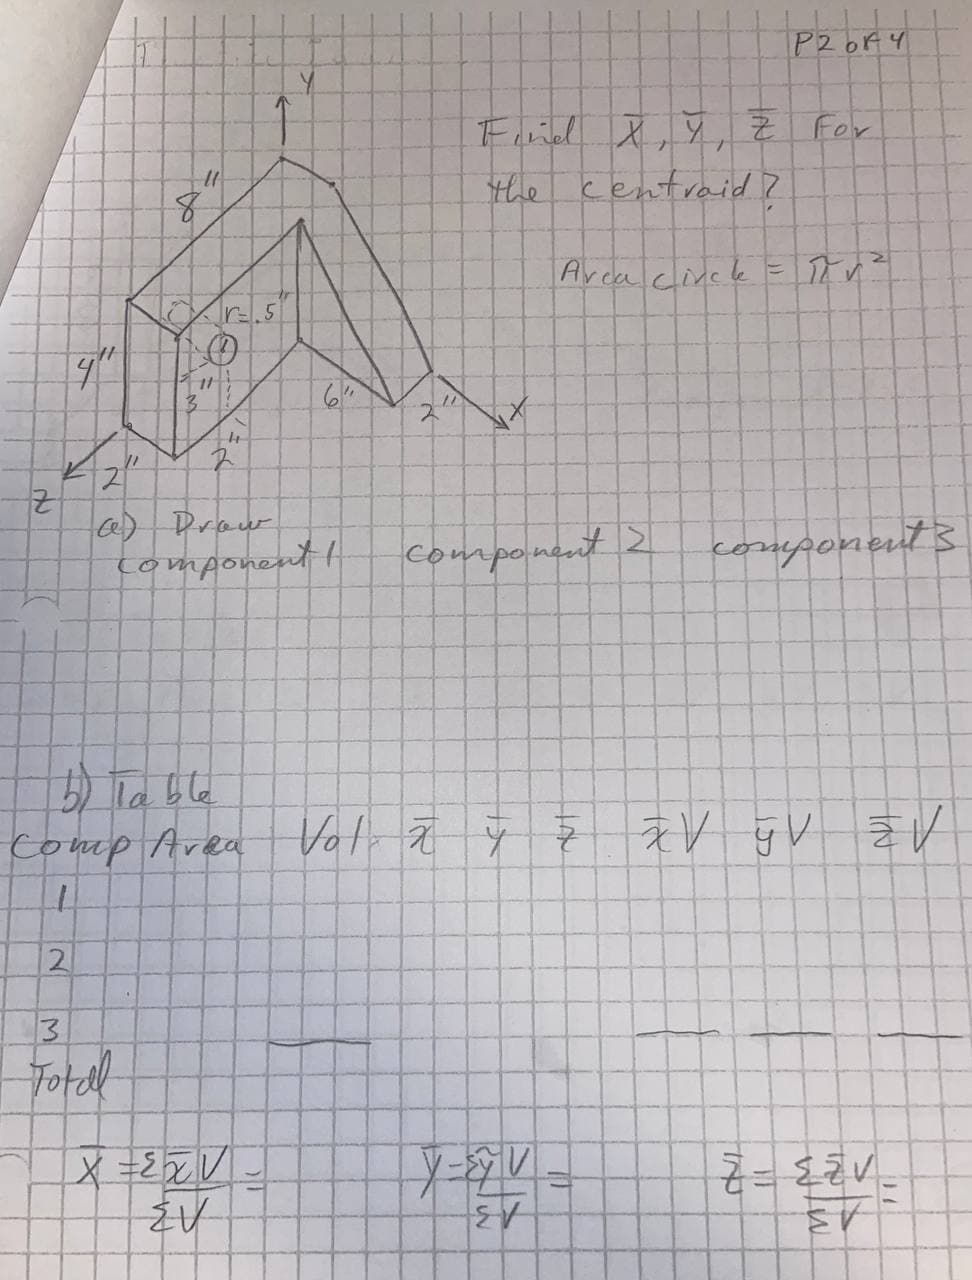 P2 of 4
Y
Find X̄, Ȳ, Z̄ For
the centraid?
8"
Area circle = πr²
r=.5"
4"
3"
6"
2"
X
2"
2"
Z
a) Draw
component 1 component 2 component 3
b) Table
Comp Area Vol. x̄ ȳ z̄ x̄V ȳV z̄V
1
2
3
Total
X̄ = Σx̄V/ΣV = Ȳ = ΣȳV/ΣV = Z̄ = Σz̄V/ΣV =